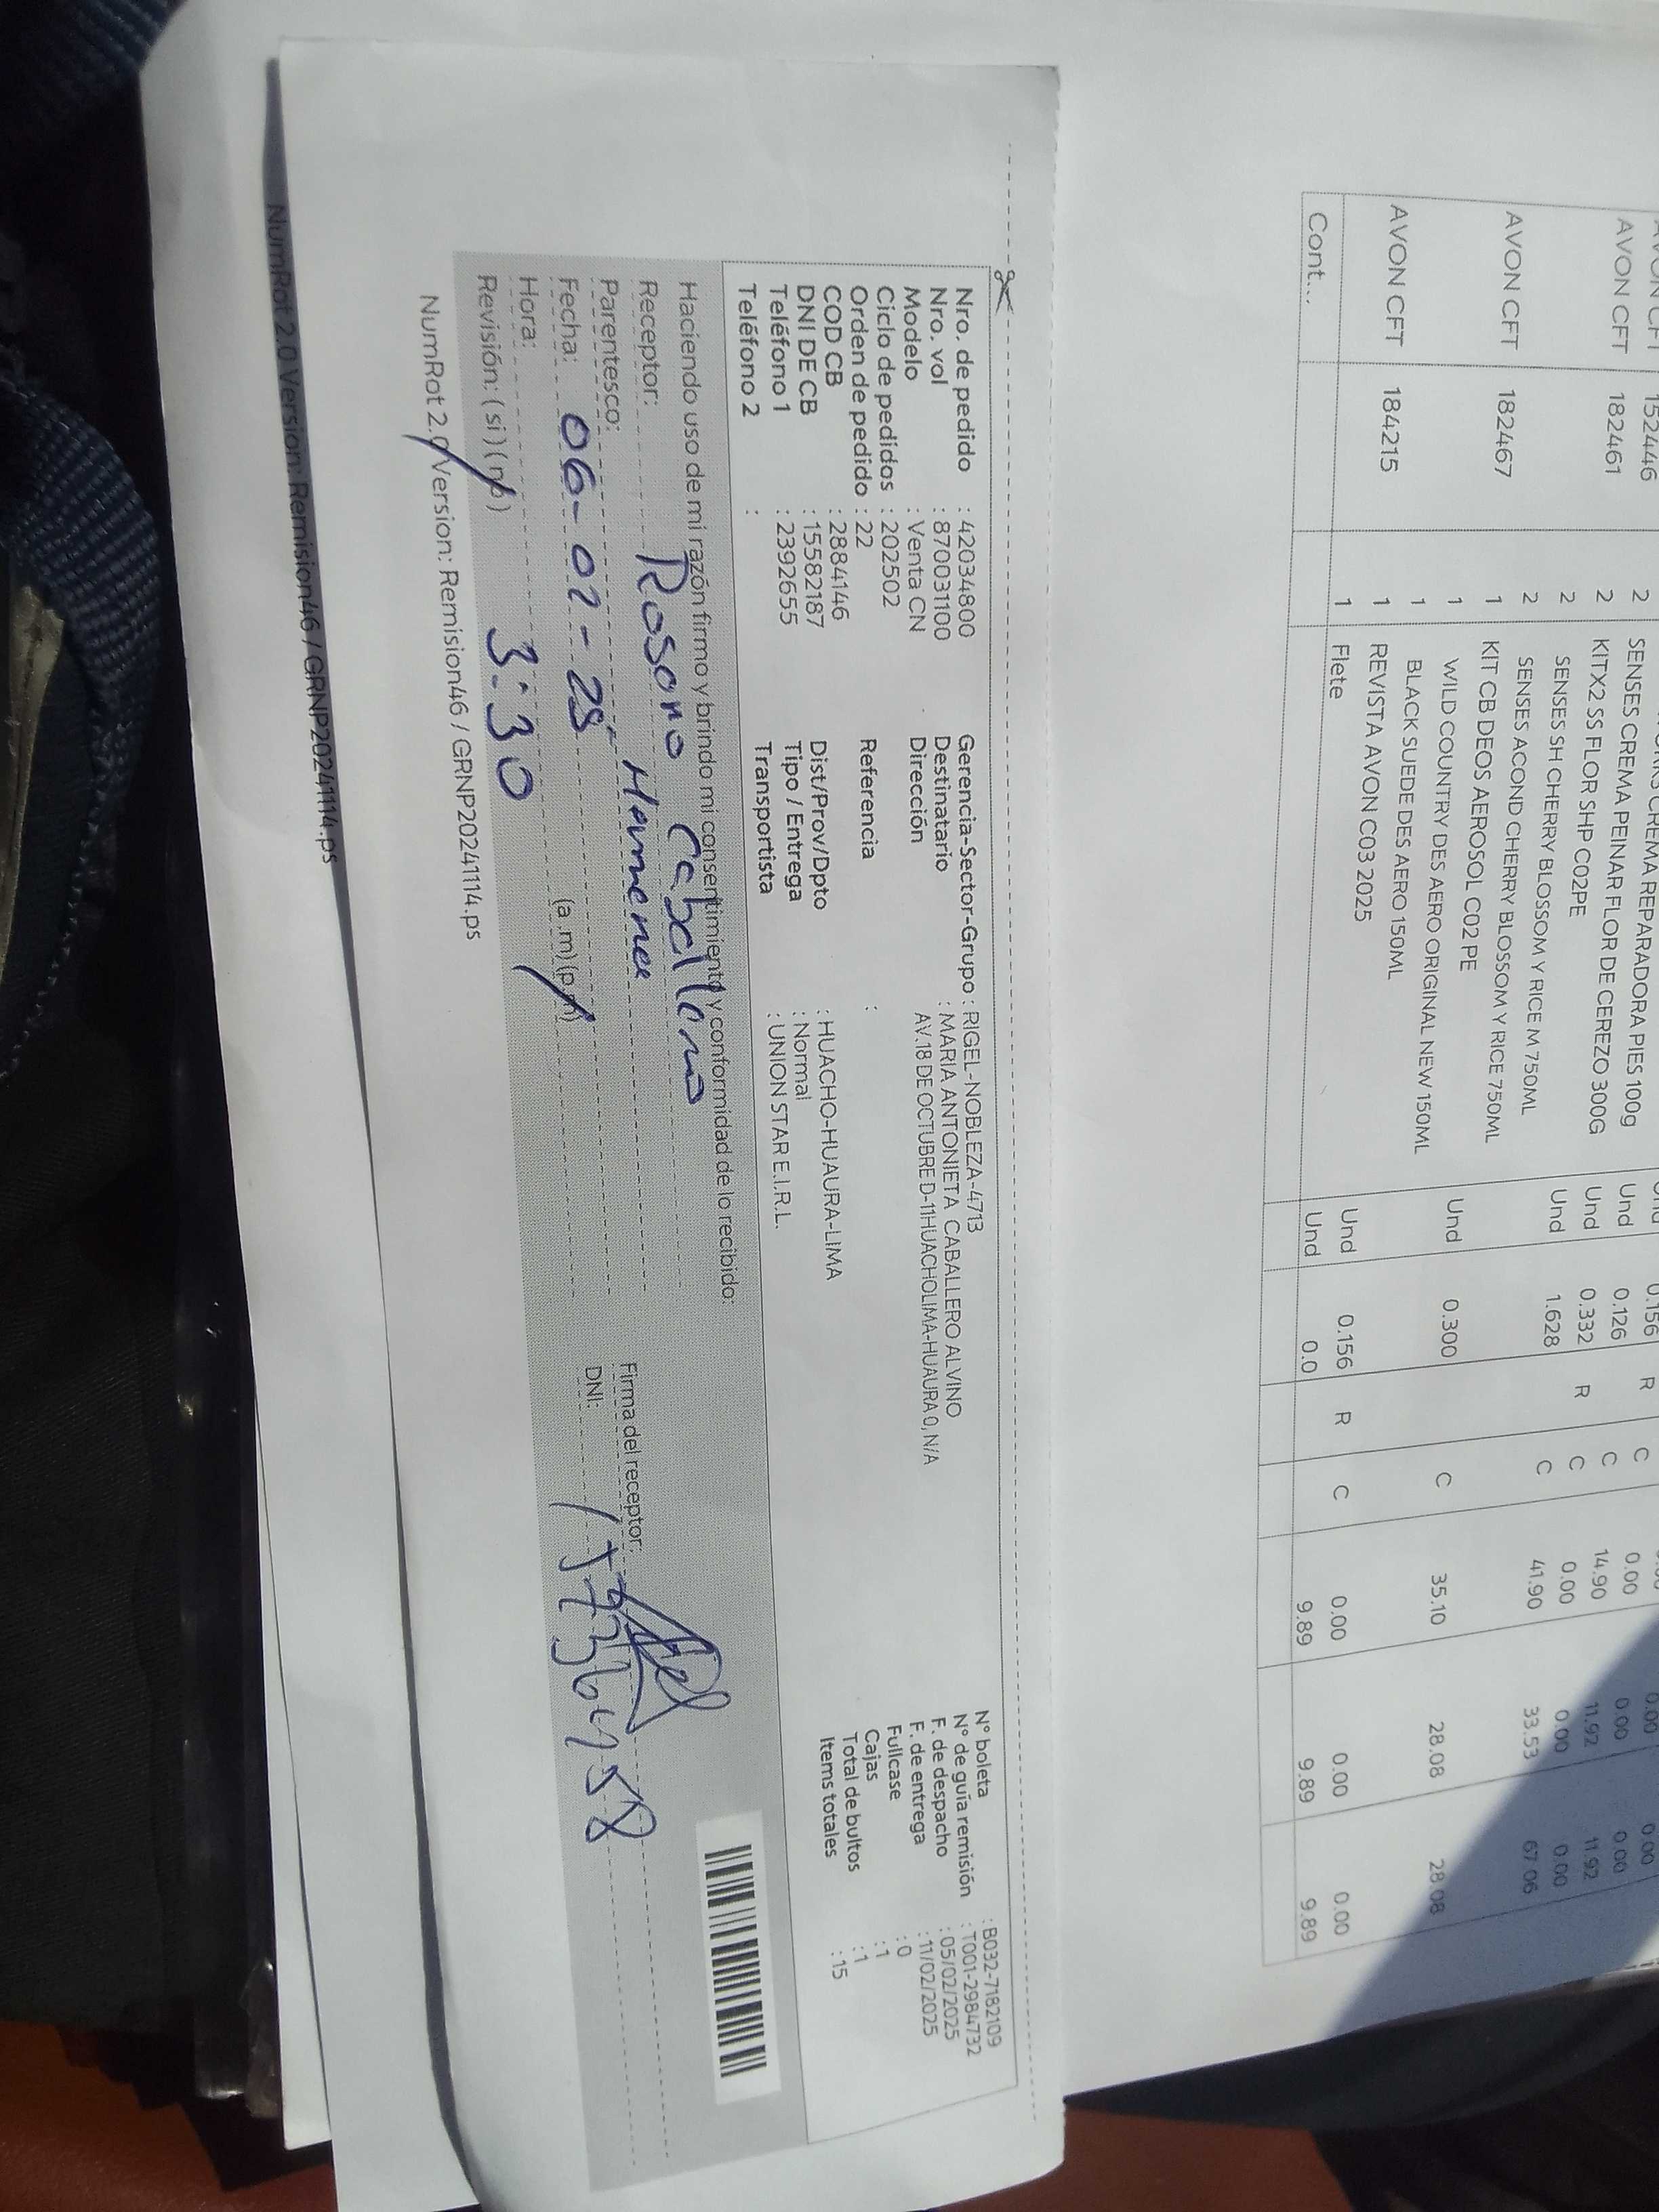 152446 2 SENSES CREMA REPARADORA PIES 100g Und 0.126 R C 0.00 0.00 0.00
AVON CFT 182461 2 KITX2 SS FLOR SHP C02PE Und 0.332 C 14.90 11.92 11.92
2 SENSES CREMA PEINAR FLOR DE CEREZO 300G
2 SENSES SH CHERRY BLOSSOM Y RICE M 750ML
2 SENSES ACOND CHERRY BLOSSOM Y RICE 750ML
AVON CFT 182467 1 KIT CB DEOS AEROSOL C02 PE Und 0.300 C 35.10 28.08 28.08
1 WILD COUNTRY DES AERO ORIGINAL NEW 150ML
1 BLACK SUEDE DES AERO 150ML
AVON CFT 184215 1 REVISTA AVON C03 2025 Und 0.156 R C 0.00 0.00 0.00
1 Flete Und 0.0 9.89 9.89 9.89
Cont...
Nro. de pedido : 42034800 Gerencia-Sector-Grupo : RIGEL-NOBLEZA-4713 N° boleta : B032-7182109
Nro. vol : 870031100 Destinatario : MARIA ANTONIETA CABALLERO ALVINO N° de guía remisión : T001-2984732
Modelo : Venta CN Dirección AV.18 DE OCTUBRE D-11HUACHOLIMA-HUAURA 0, N/A F. de despacho : 05/02/2025
Ciclo de pedidos : 202502 F. de entrega : 11/02/2025
Orden de pedido : 22 Referencia : Fullcase : 0
COD CB : 2884146 Cajas : 1
DNI DE CB : 15582187 Dist/Prov/Dpto : HUACHO-HUAURA-LIMA Total de bultos : 1
Teléfono 1 : 2392655 Tipo / Entrega : Normal Items totales : 15
Teléfono 2 : Transportista : UNION STAR E.I.R.L.
Haciendo uso de mi razón firmo y brindo mi consentimiento y conformidad de lo recibido:
Receptor:
Parentesco: Firma del receptor:
Fecha: 06-02-25 DNI:
Hora: 3:30 (a.m) (p.m)
Revisión: ( si ) ( no )
NumRot 2.0 Version: Remision46 / GRNP20241114.ps
NumRot 2.0 Version: Remision46 / GRNP20241114.ps